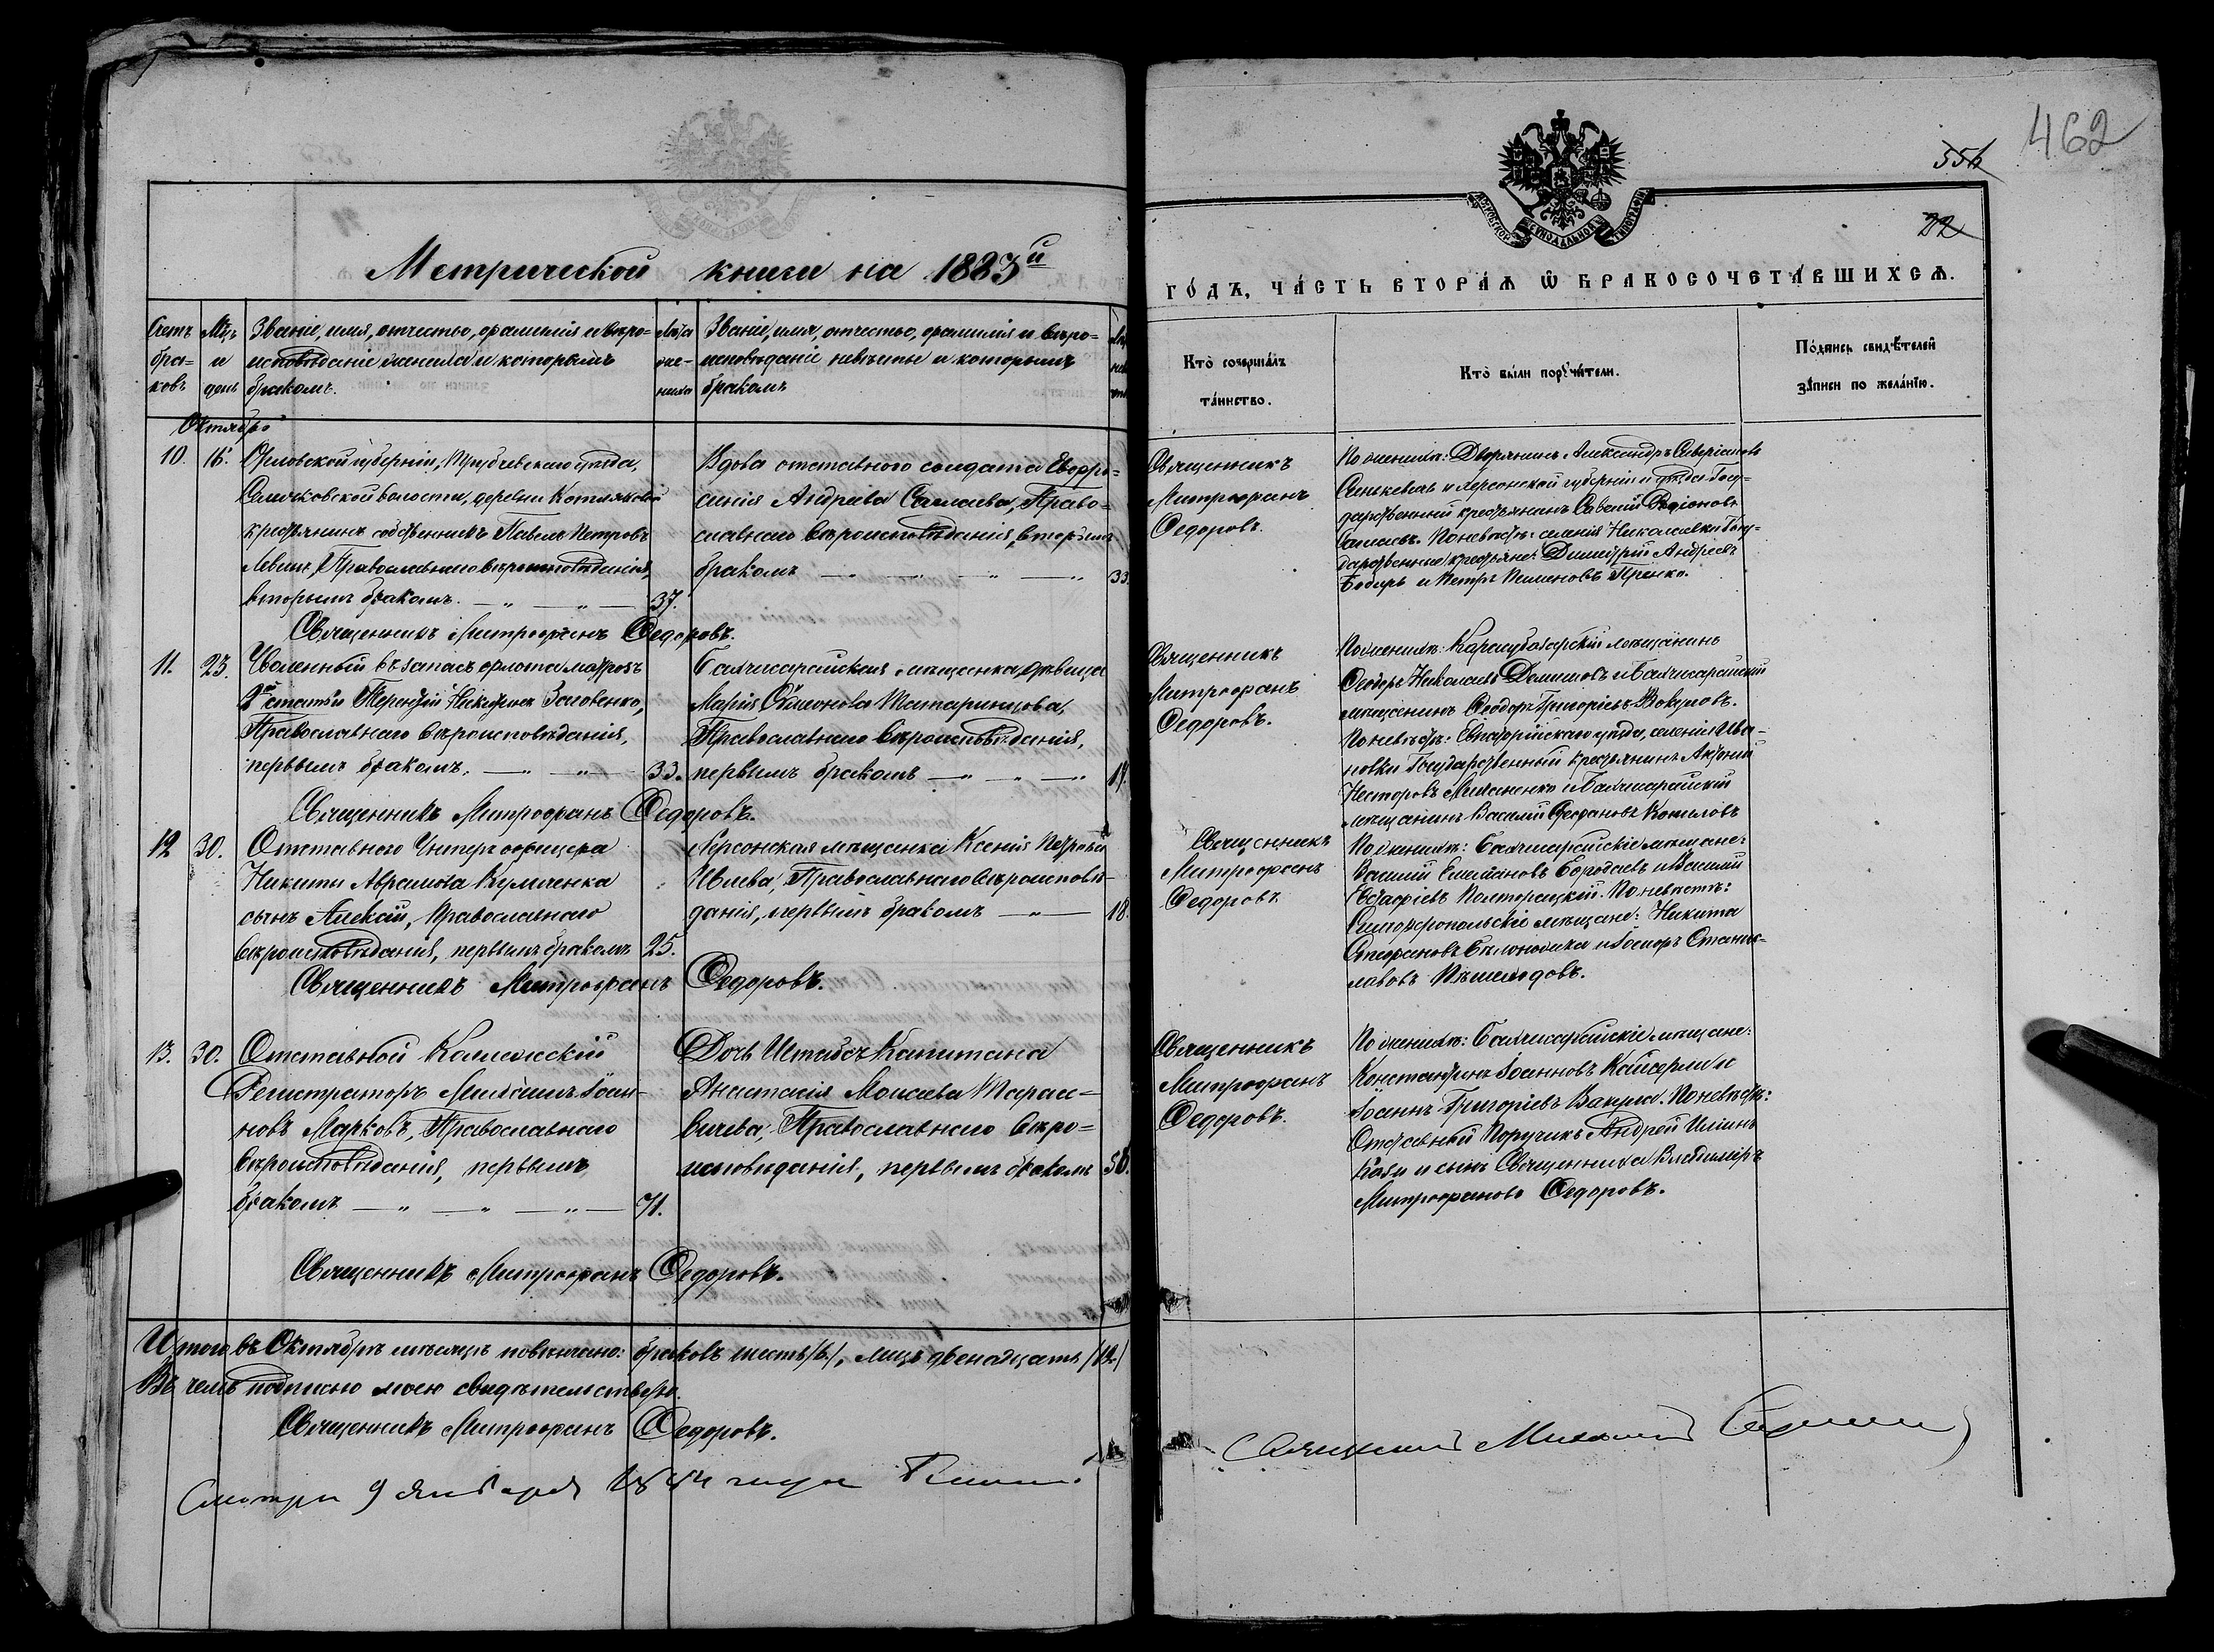 462
556
22
Метрической книги на 1883й
годъ, часть вторая ѿ бракосочетавшихся.
Счетъ браковъ
Мѣцъ и день
Званіе, имя, отчество, фамилія и вѣро-
исповѣданіе жениха и которымъ
бракомъ.
Лѣта жениха
Званіе, имя, отчество, фамилія и вѣро-
исповѣданіе невѣсты и которымъ
бракомъ
Кто совершалъ
таинство.
Кто были поручители.
Подпись свидѣтелей
записи по желанію.
Октябрь
10. 16.
Орловской губерніи, Трубчевскаго уѣзда,
волости, деревни
крестьянинъ собственникъ Павелъ Петровъ
Левинъ, Православнаго вѣроисповѣданія,
вторымъ бракомъ. 37.
Вдова отставного солдата Евфро-
синія Андреева Право-
славнаго вѣроисповѣданія, вторымъ
бракомъ 33.
Священникъ
Митрофанъ
Федоровъ.
По женихѣ: Дворянинъ Александръ
Сенькевичъ и Херсонской губерніи и уѣзда Госу-
дарственный крестьянинъ Савелій Родіоновъ
По невѣстѣ: селенія Николаевки Госу-
дарственные крестьяне: Димитрій Андреевъ
Бодырь и Петръ Пименовъ
Священникъ Митрофанъ Федоровъ.
11. 23.
Уволенный въ запасъ флота матросъ
2й статьи Терентій Никитинъ Заговенко,
Православнаго вѣроисповѣданія,
первымъ бракомъ. 33.
Бахчисарайская мѣщанка, дѣвица
Марія Татаринцова,
Православнаго вѣроисповѣданія,
первымъ бракомъ 17.
Священникъ
Митрофанъ
Федоровъ.
По женихѣ: Карасубазарскій мѣщанинъ
Феодоръ Николаевъ и Бахчисарайскій
мѣщанинъ Феодоръ Григорьевъ
По невѣстѣ: Евпаторійскаго уѣзда, селенія Ива-
новки Государственный крестьянинъ
Несторовъ и Бахчисарайскій
мѣщанинъ Василій Стефановъ
Священникъ Митрофанъ Федоровъ.
12. 30.
Отставного Унтеръ офицера
Никиты Аврамова
сынъ Алексій, Православнаго
вѣроисповѣданія, первымъ бракомъ 25.
Херсонская мѣщанка Ксенія Петрова
Ивлева, Православнаго вѣроисповѣ-
данія, первымъ бракомъ 18.
Священникъ
Митрофанъ
Федоровъ.
По женихѣ: Бахчисарайскіе мѣщане:
Василій Емельяновъ Бородаевъ и Василій
Евстафіевъ Полторацкій. По невѣстѣ:
Симферопольскіе мѣщане: Никита
Стефановъ и Стани-
славовъ Пѣшеходовъ.
Священникъ Митрофанъ Федоровъ.
13. 30.
Отставной Коллежскій
Регистраторъ Михаилъ Іоан-
новъ Марковъ, Православнаго
вѣроисповѣданія, первымъ
бракомъ 71.
Дочь Штабсъ Капитана
Анастасія Моисеева Тарас-
вичева, Православнаго вѣро-
исповѣданія, первымъ бракомъ 56.
Священникъ
Митрофанъ
Федоровъ.
По женихѣ: Бахчисарайскіе мѣщане:
Константинъ Іоанновъ и
Іоаннъ Григоріевъ По невѣстѣ:
Отставный Поручикъ Андрей Ильинъ
и сынъ Священника Владиміръ
Митрофановъ Федоровъ.
Священникъ Митрофанъ Федоровъ.
Итого въ Октябрѣ мѣсяцѣ повѣнчано: браковъ шесть /6/, лицъ двенадцать /12/
Въ чемъ подписью моею свидѣтельствую.
Священникъ Митрофанъ Федоровъ.
Смотрѣлъ 9 Января 1884 года
Священникъ Михаилъ